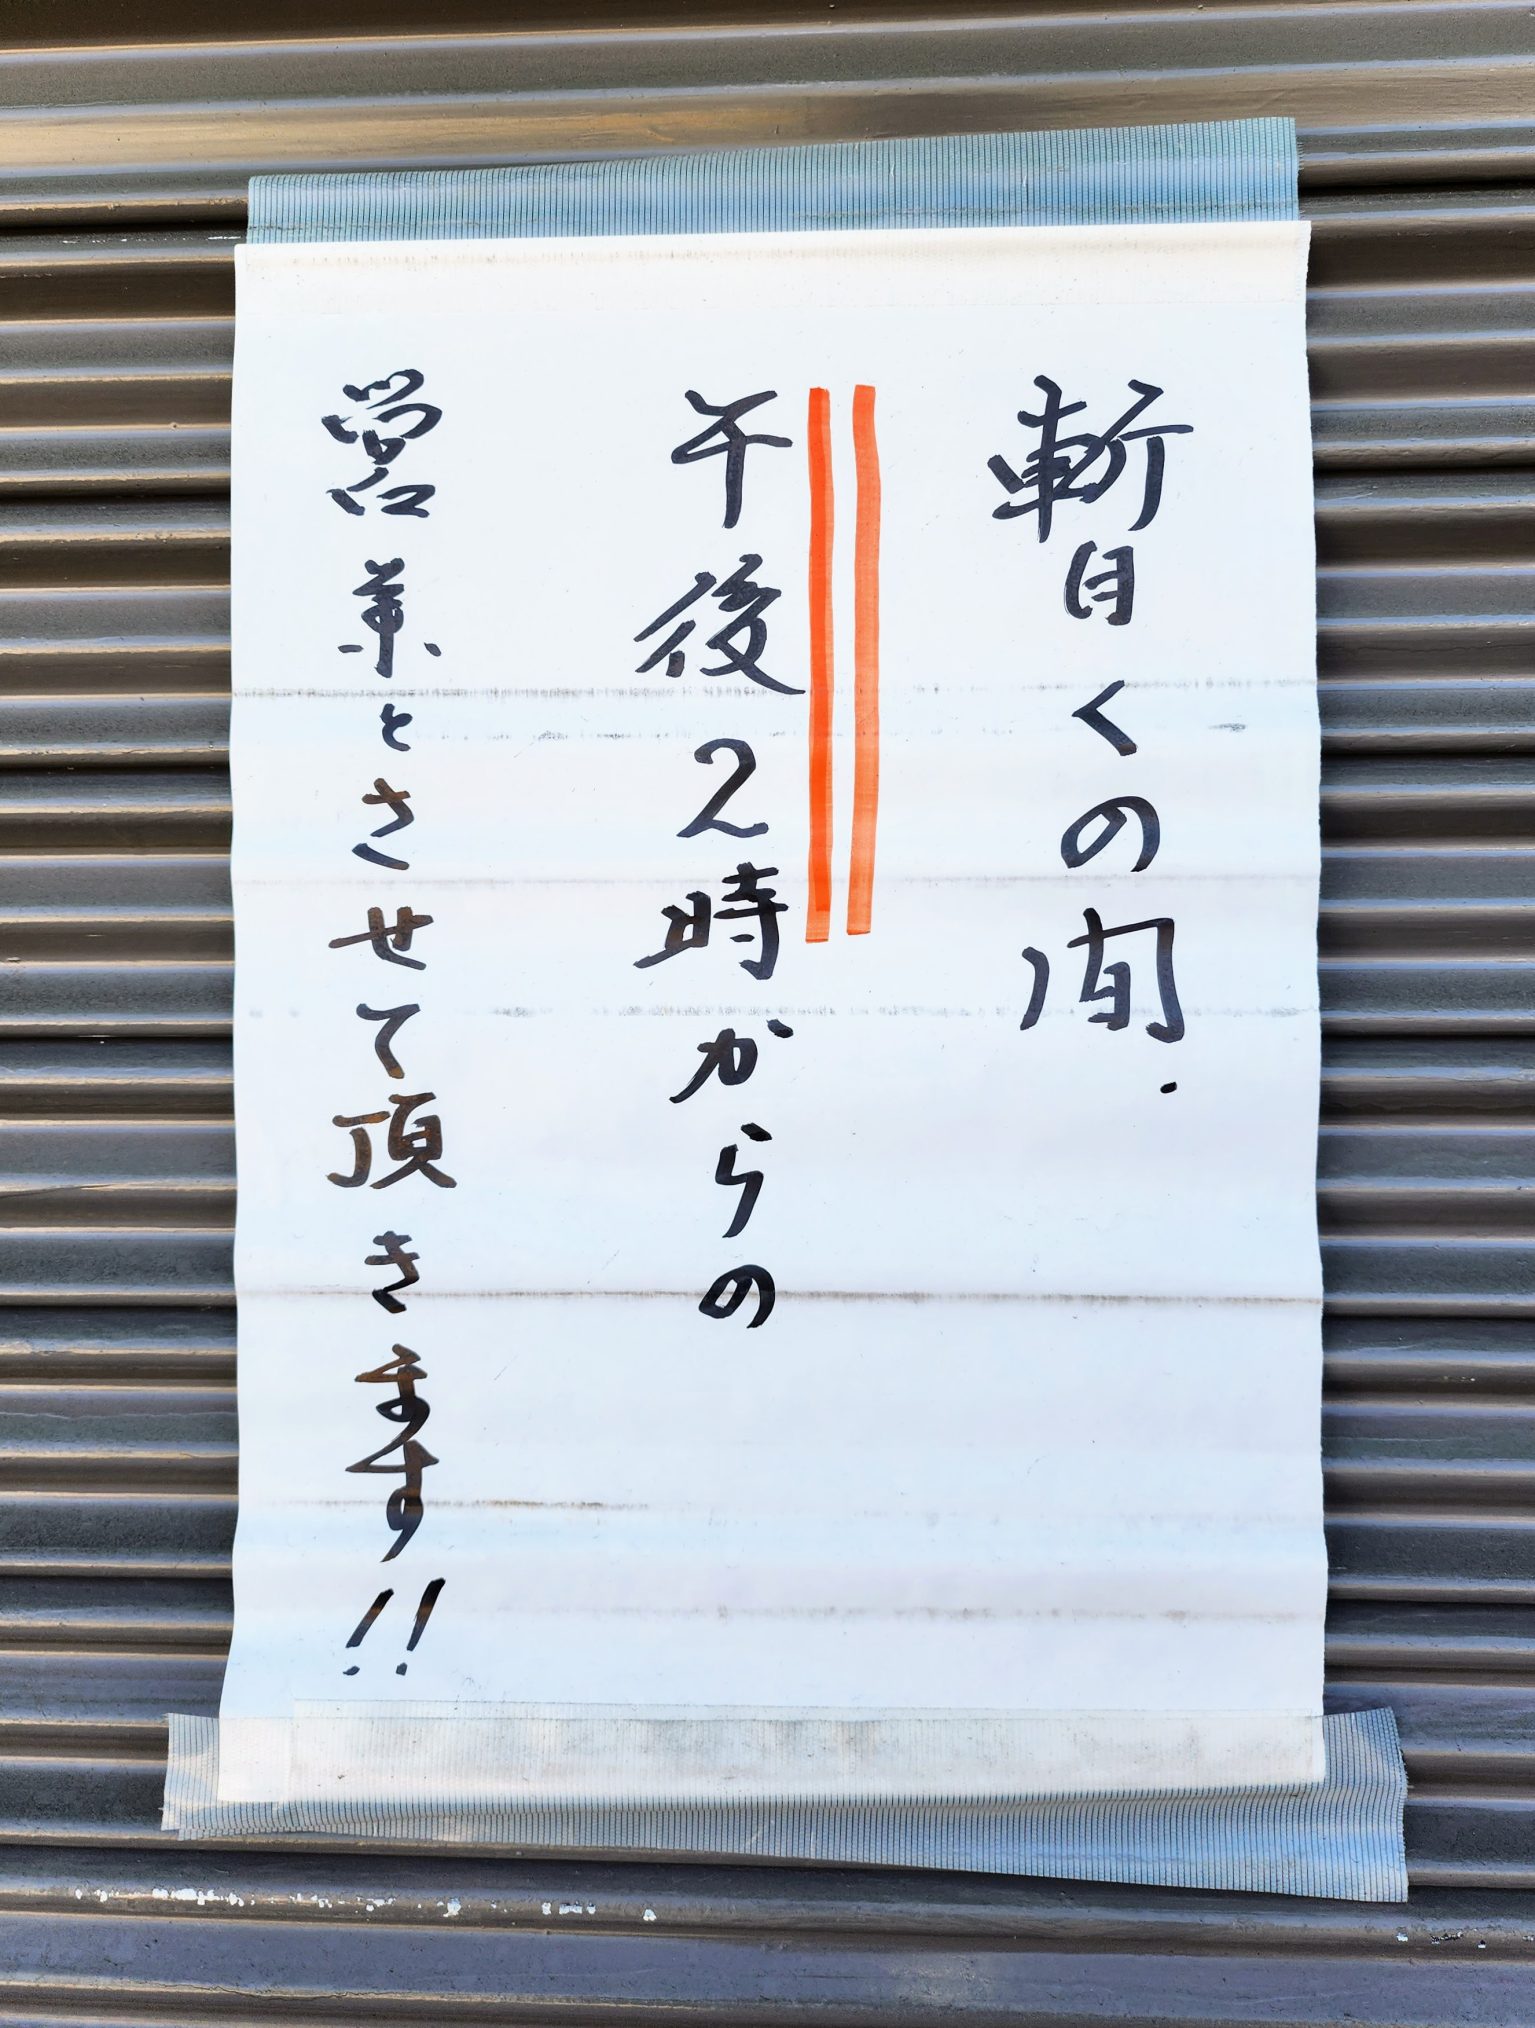 暫くの間.
午後2時からの
営業とさせて頂きます!!